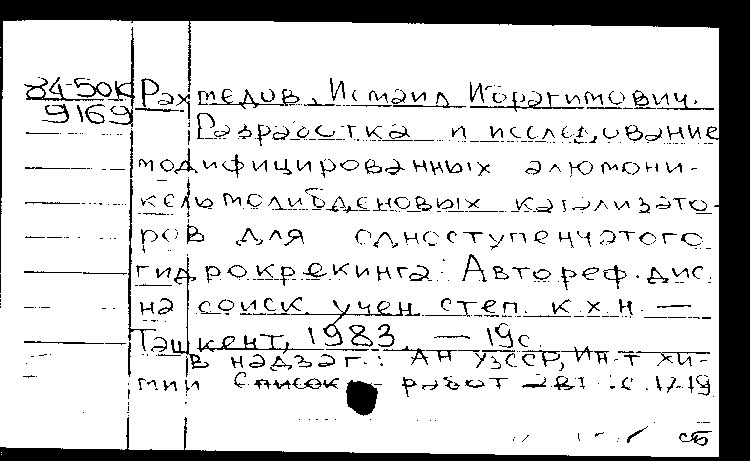 84-50К
9169
Рахмедов, Исмаил Ибрагимович.
Разработка и исследование
модифицированных алюмони-
кельмолибденовых катализато-
ров для одноступенчатого
гидрокрекинга: Автореф. дис.
на соиск. учен. степ. к.х.н. —
Ташкент, 1983. — 19с.
В надзаг.: АН УзССР, Ин-т хи-
мии Список работ : с. 17-19